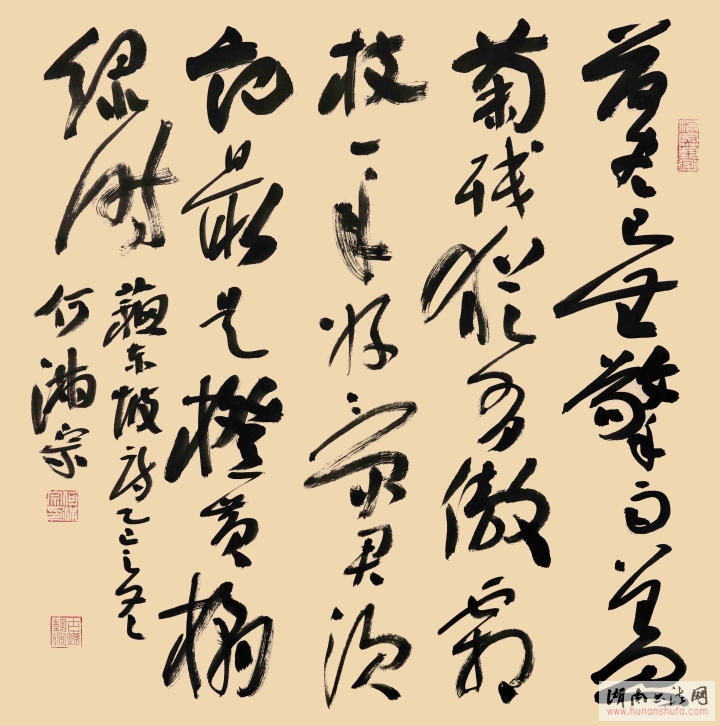 荷尽已無擎雨蓋
菊残猶有傲霜
枝一年好景君须
记最是橙黄橘
绿时
蘇东坡诗乙巳之冬
何满宗
湖南书法网
www.hunanshufa.com